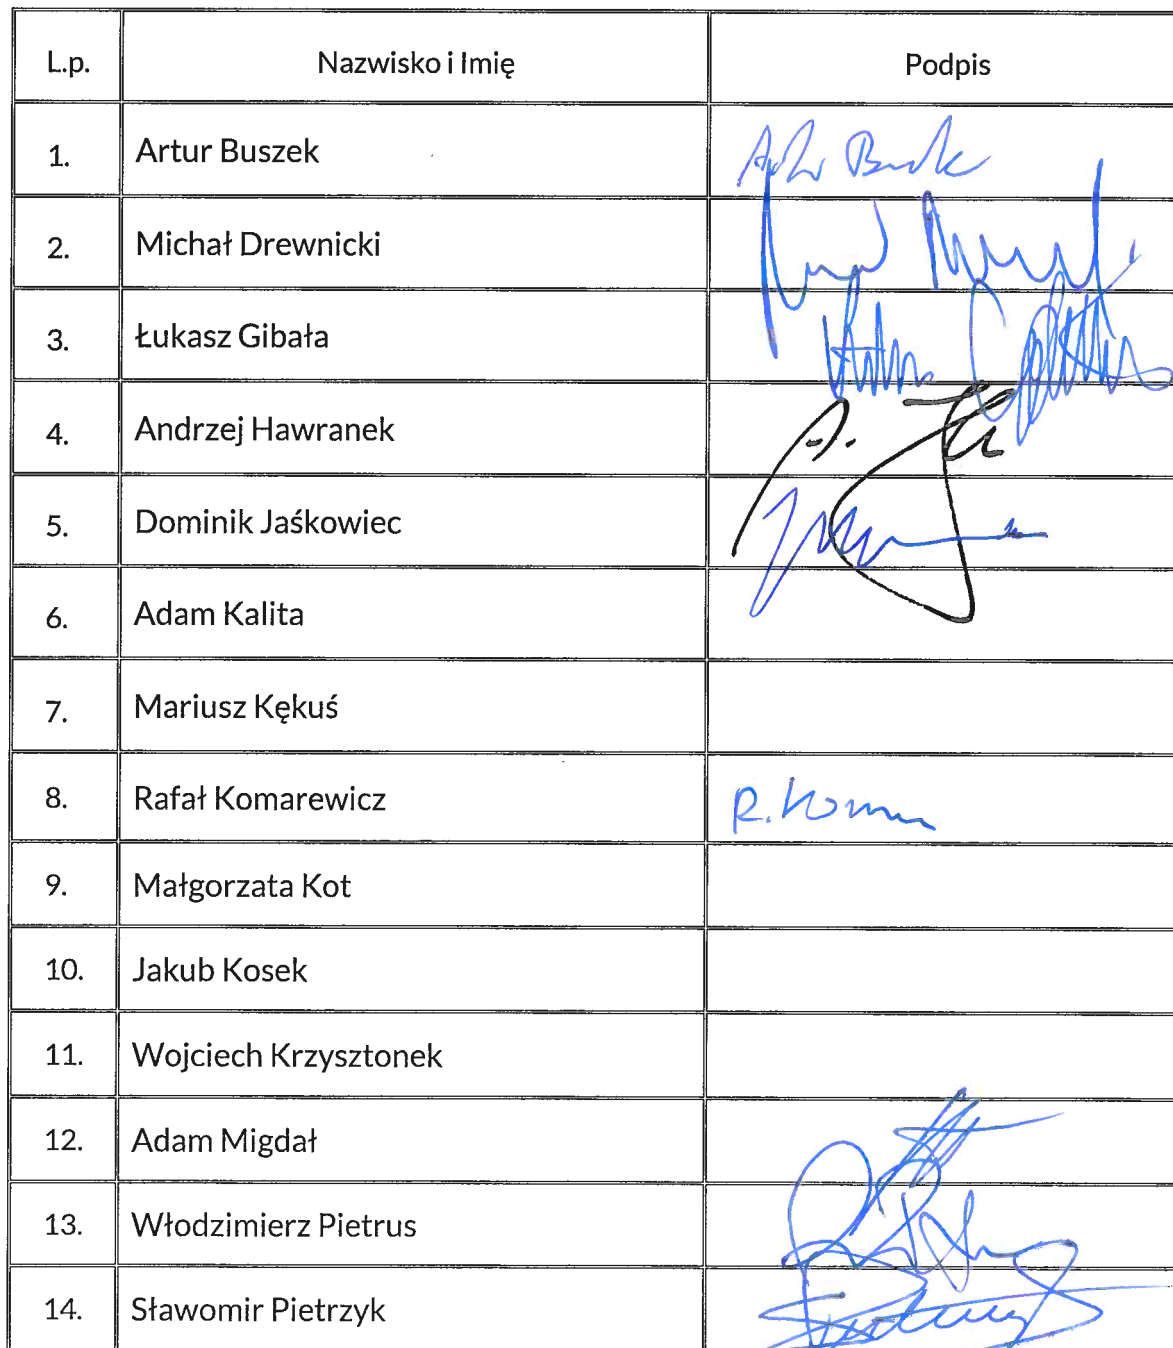 L.p. Nazwisko i Imię Podpis
1. Artur Buszek
2. Michał Drewnicki
3. Łukasz Gibała
4. Andrzej Hawranek
5. Dominik Jaśkowiec
6. Adam Kalita
7. Mariusz Kękuś
8. Rafał Komarewicz R.
9. Małgorzata Kot
10. Jakub Kosek
11. Wojciech Krzysztonek
12. Adam Migdał
13. Włodzimierz Pietrus
14. Sławomir Pietrzyk